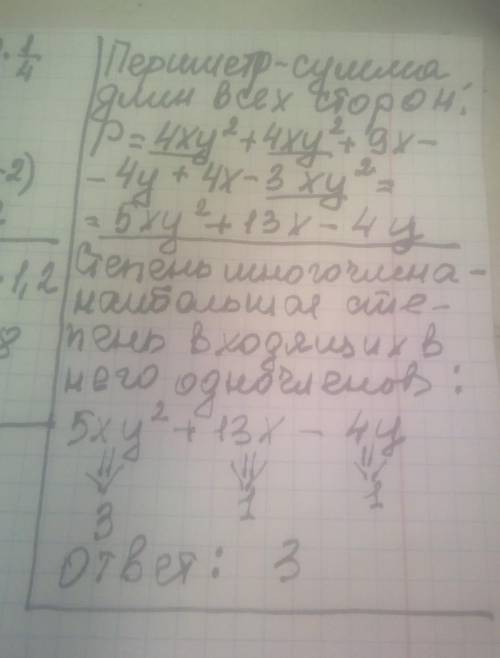 · 1/4
-2)
2
-1,2
8
Периметр-сумма
длин всех сторон:
P= 4xy² + 4xy² + 9x -
- 4y + 4x - 3xy² =
= 5xy² + 13x - 4y
Степень многочлена-
наибольшая сте-
пень входящих в
него одночленов:
5xy² + 13x - 4y
3 1 1
ответ: 3